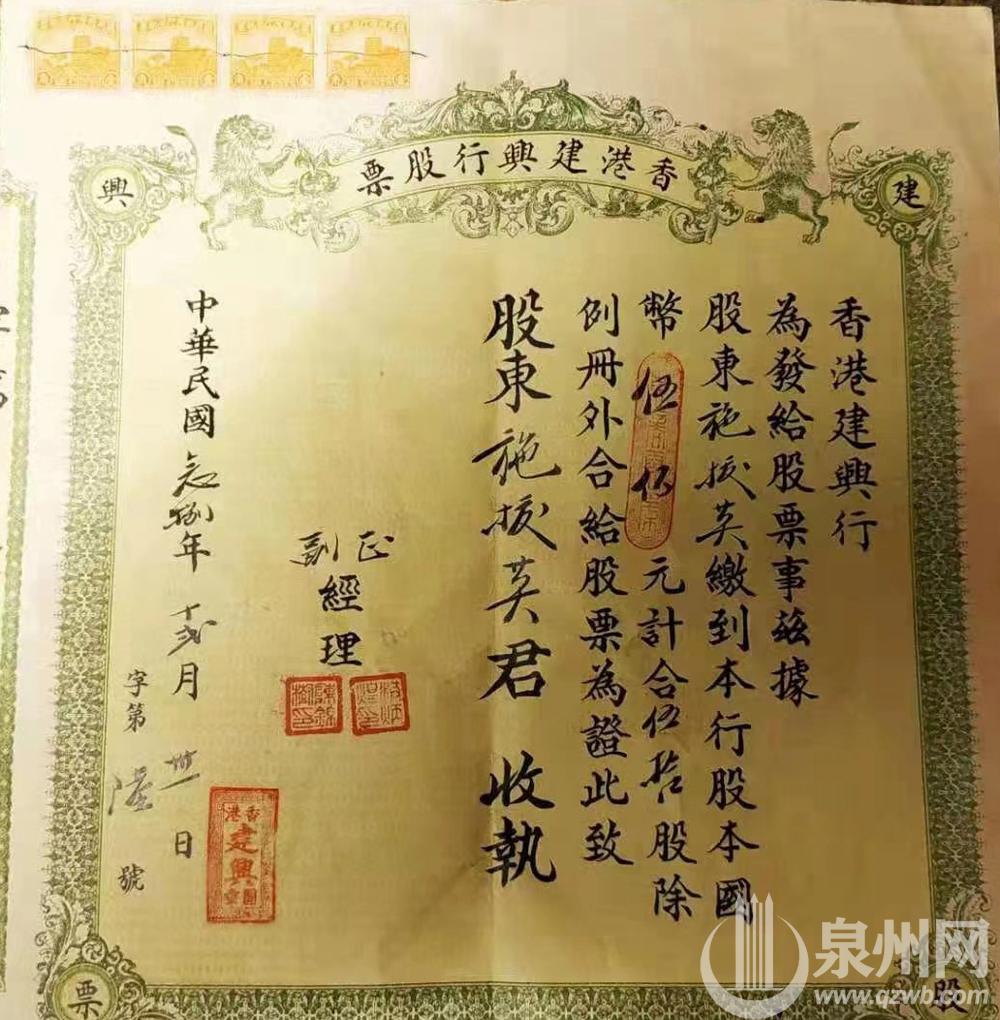 香港建興行股票
建
興
股
票
香港建興行
為發給股票事茲據
股東施拔英繳到本行股本國
幣伍佰元計合伍拾股除
例冊外合給股票為證此致
股東施拔英君 收執
正副經理
中華民國念捌年十弍月卅一日
字第 陸 號
香港
建興
圖章
泉州网
www.qzwb.com